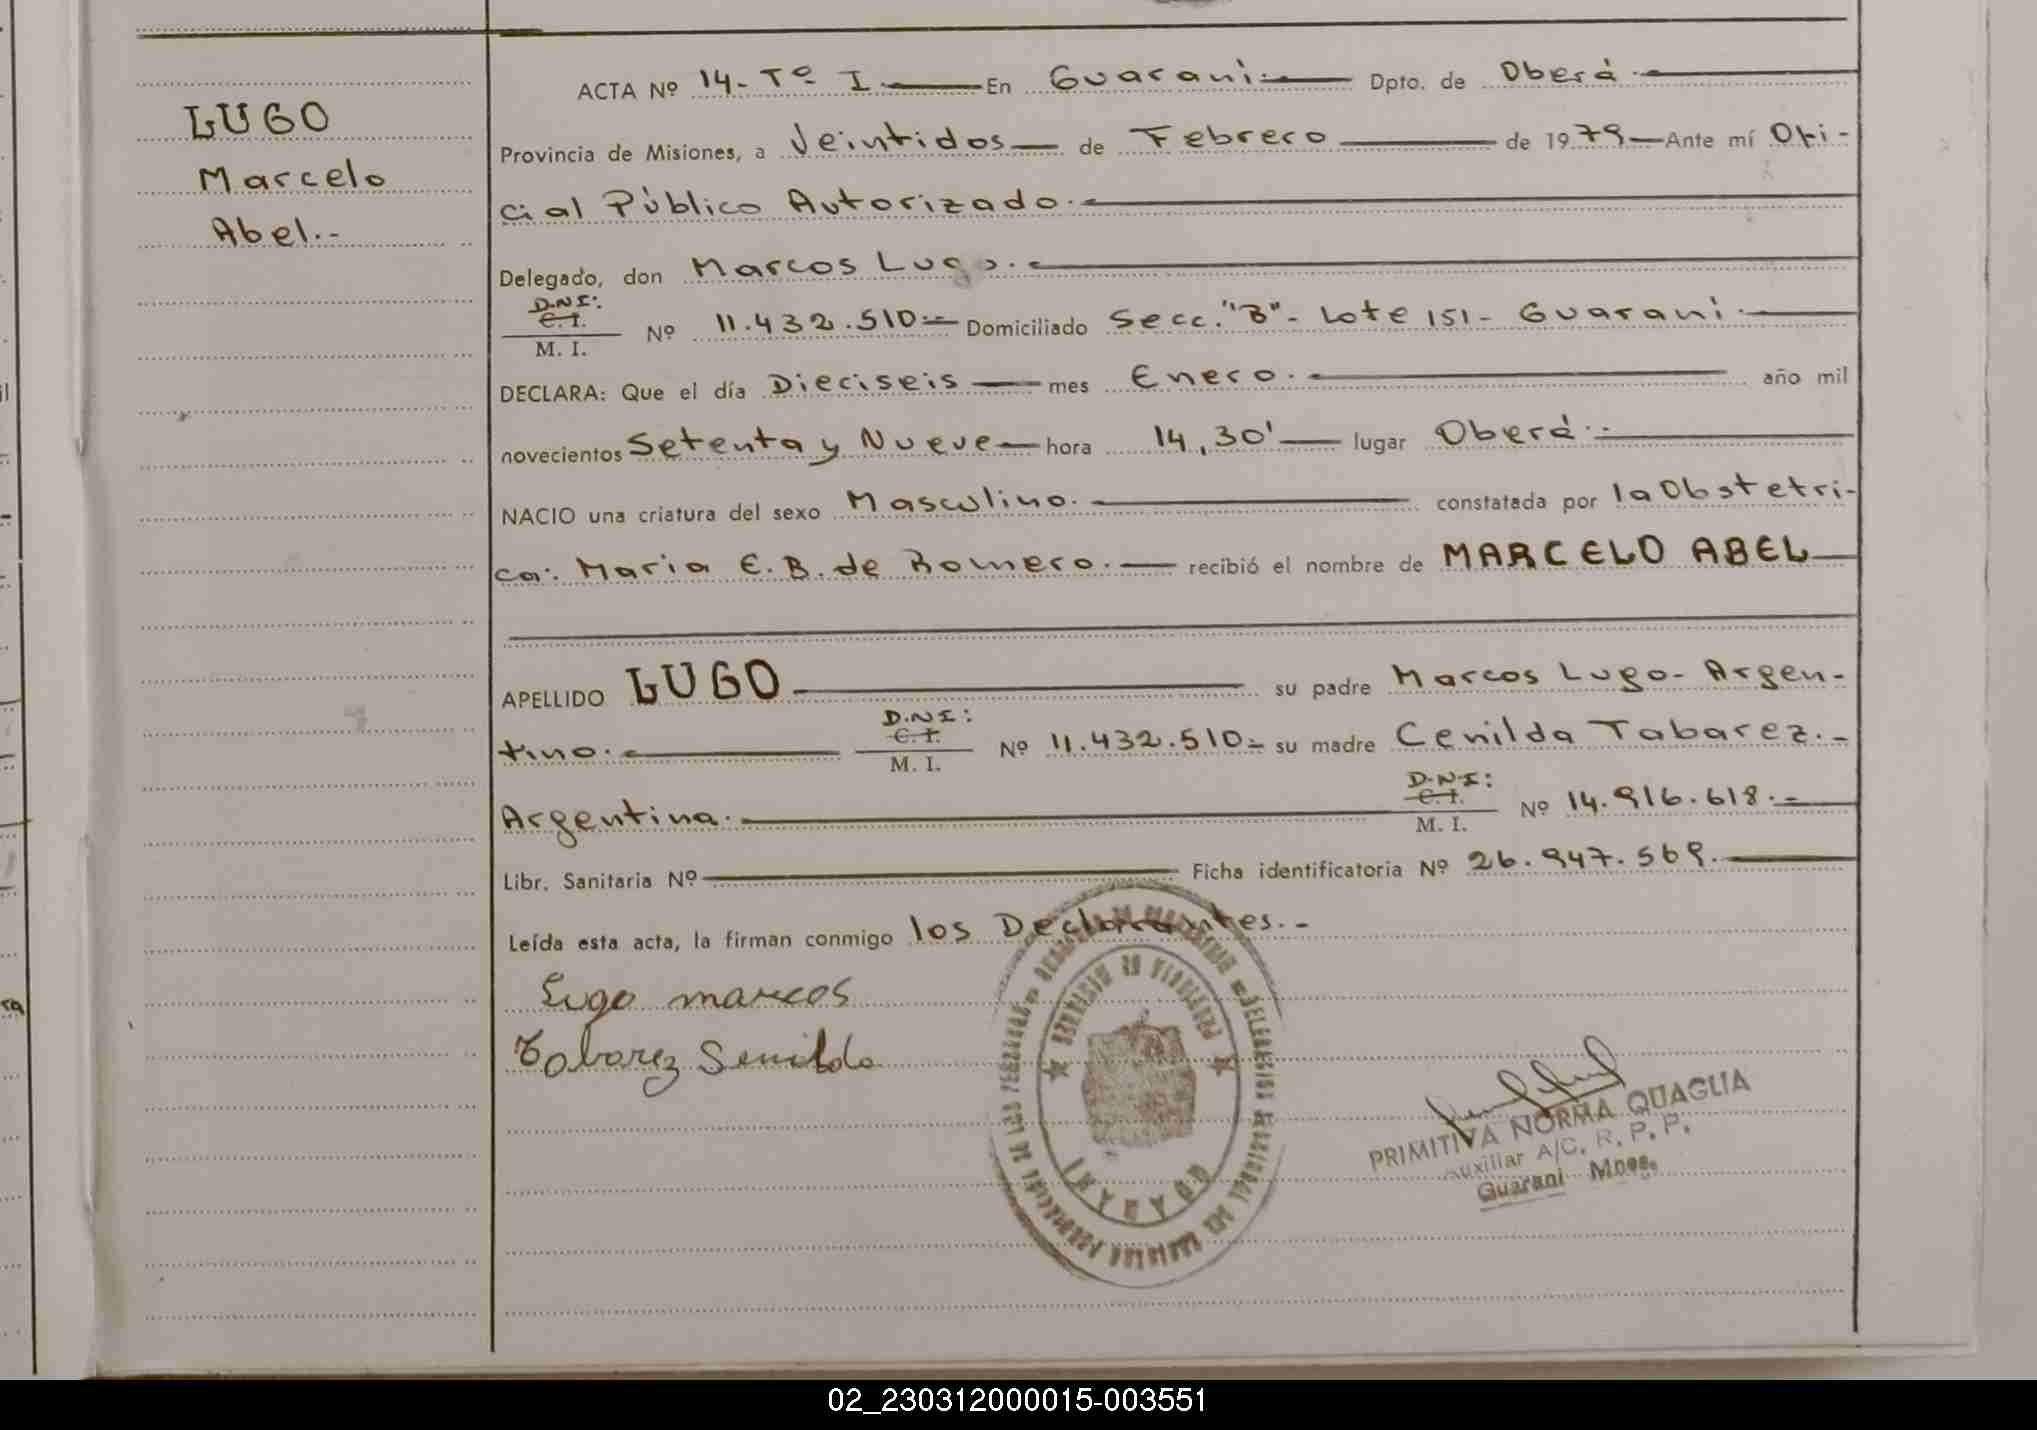 LUGO
Marcelo
Abel.-
ACTA Nº 14- Tº I. En Guaraní. Dpto. de Oberá.
Provincia de Misiones, a Veintidos de Febrero de 1979 Ante mí Ofi-
cial Público Autorizado.
Delegado, don Marcos Lugo.
D.N.I:
C. I.
M. I.
Nº 11.432.510.- Domiciliado Secc. "B"- Lote 151- Guaraní.
DECLARA: Que el día Dieciseis mes Enero. año mil
novecientos Setenta y Nueve hora 14,30' lugar Oberá.
NACIO una criatura del sexo Masculino. constatada por la Obstetri-
ca: Maria E. B. de Romero. recibió el nombre de MARCELO ABEL
APELLIDO LUGO su padre Marcos Lugo- Argen-
tino.
D.N.I:
C. I.
M. I.
Nº 11.432.510.- su madre Cenilda Tabarez.-
Argentina.
D.N.I:
C. I.
M. I.
Nº 14.916.618.-
Libr. Sanitaria Nº Ficha identificatoria Nº 26.947.569.
Leída esta acta, la firman conmigo los Declarantes.-
Lugo marcos
Tabarez Senilda
PROVINCIA DE MISIONES
GUARANI
PRIMITIVA NORMA QUAGLIA
Auxiliar A/C. R. P. P.
Guaraní Mnes.
ra
02_230312000015-003551